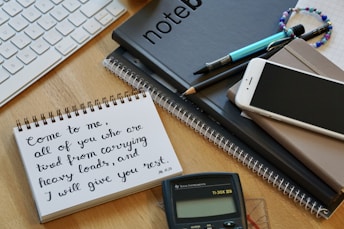 noteb
Come to me,
all of you who are
tired from carrying
heavy loads, and
I will give you rest.
TEXAS INSTRUMENTS